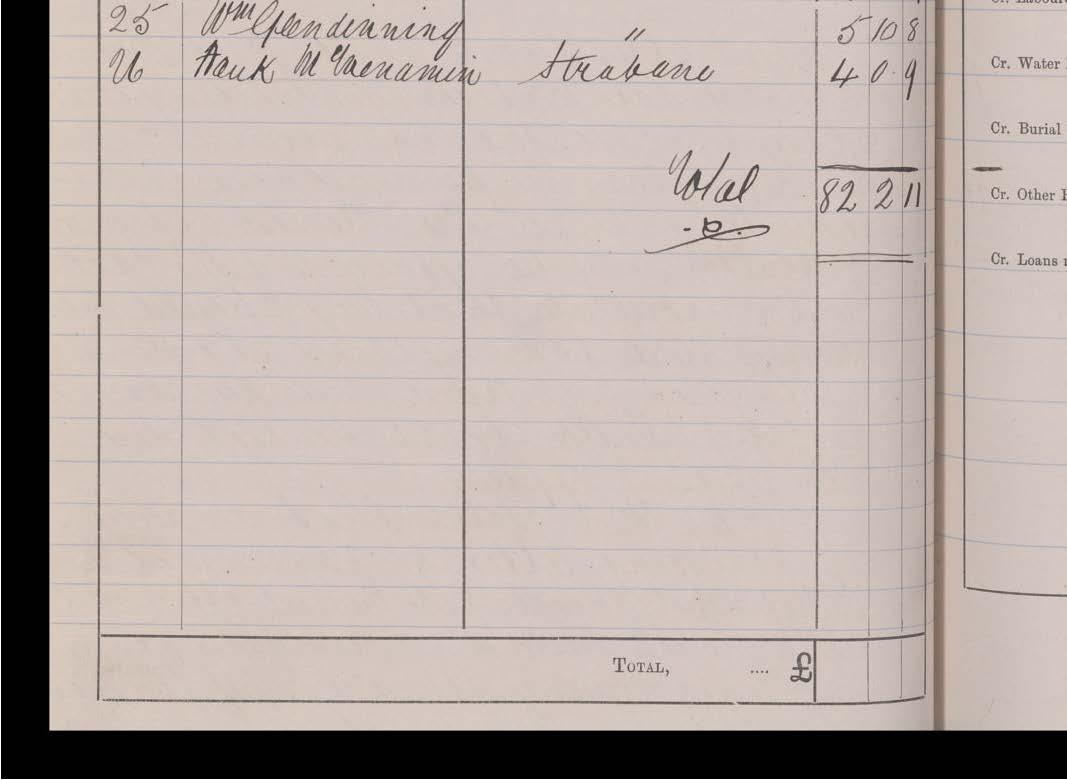 25 Wm Glendinning " 5 10 8
26 Hank McMenamin Strabane 4 0 9
Total 82 2 11
Total, .... £
Cr. Water
Cr. Burial
Cr. Other
Cr. Loans